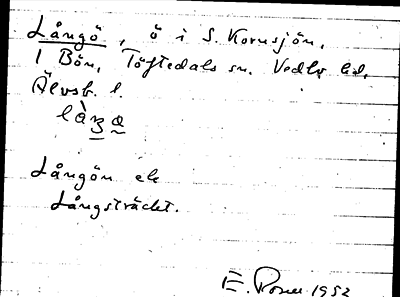 Långö, ö i S. Kornsjön,
1 Bön, Töftedals sn. Vedbo hd,
Älvsb. l.
làŋa
Långön el.
Långsträckt.
E. Rosell 1952